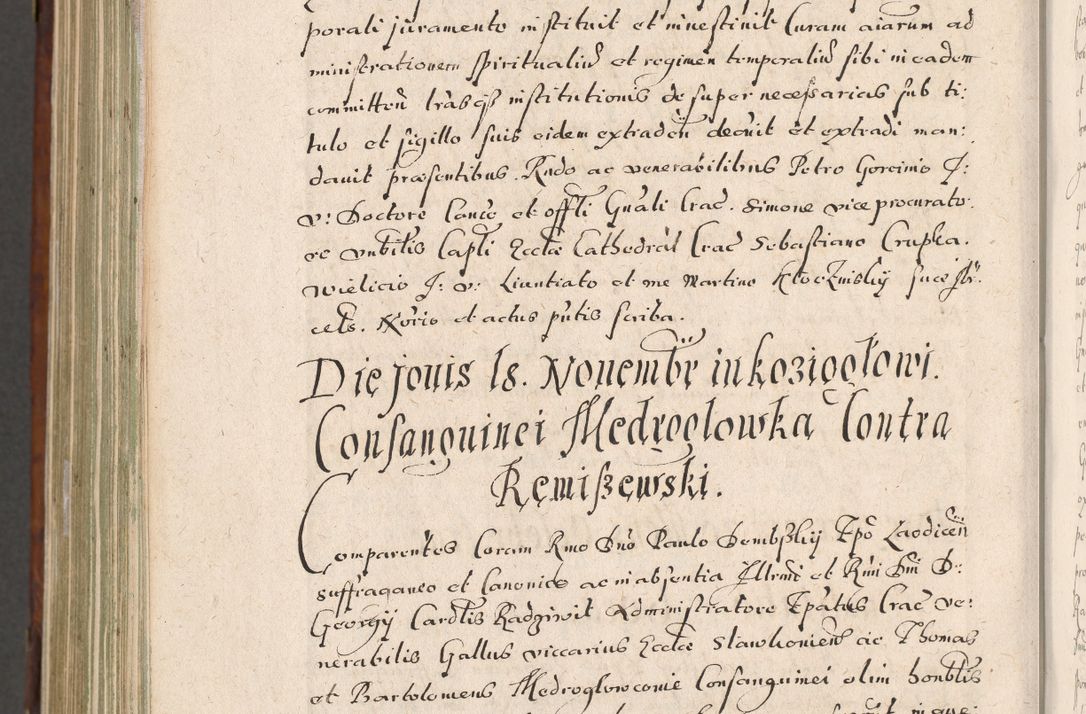 porali juramento instituit et investivit Curam aiarum ad
ministrationem spiritualiũ et regimen temporaliũ sibi in eadem
committen̄ lrasq̃ institutionis desuper necessarias sub ti:
tulo et sigillo suis eidem extraden̄ decrevit et extradi man:
davit præsentibus. Rndo ac venerabilibus Petro Gorcinio J:
v: Doctore Canco et offli Gnali Crac. Simone vice procurato:
re vnbilis Capli Eccłæ Cathedral Crac Sebastiano Crupka.
Wielicio J: v: Licentiato et me Martino Kloczinskij
cels. Norio et actus pñtis scriba.
Die jouis 18. Nouembr̃ in koziogłowi.
Consanguinei Mędrogłowka Contra
Remiszewski.
Comparentes Coram Rmo Dno Paulo Dembskij Epõ Laodicen̄
suffraganeo et Canonico ac in absentia Illrmi et Rmi Dni D:
Georgij Cardlis Radziwił Administratore Epatus Crac ve:
nerabilis Gallus viccarius Eccłæ Slawkoviens ac Thomas
et Bartolomeus Medroglowconie Consanguinei olim honblis